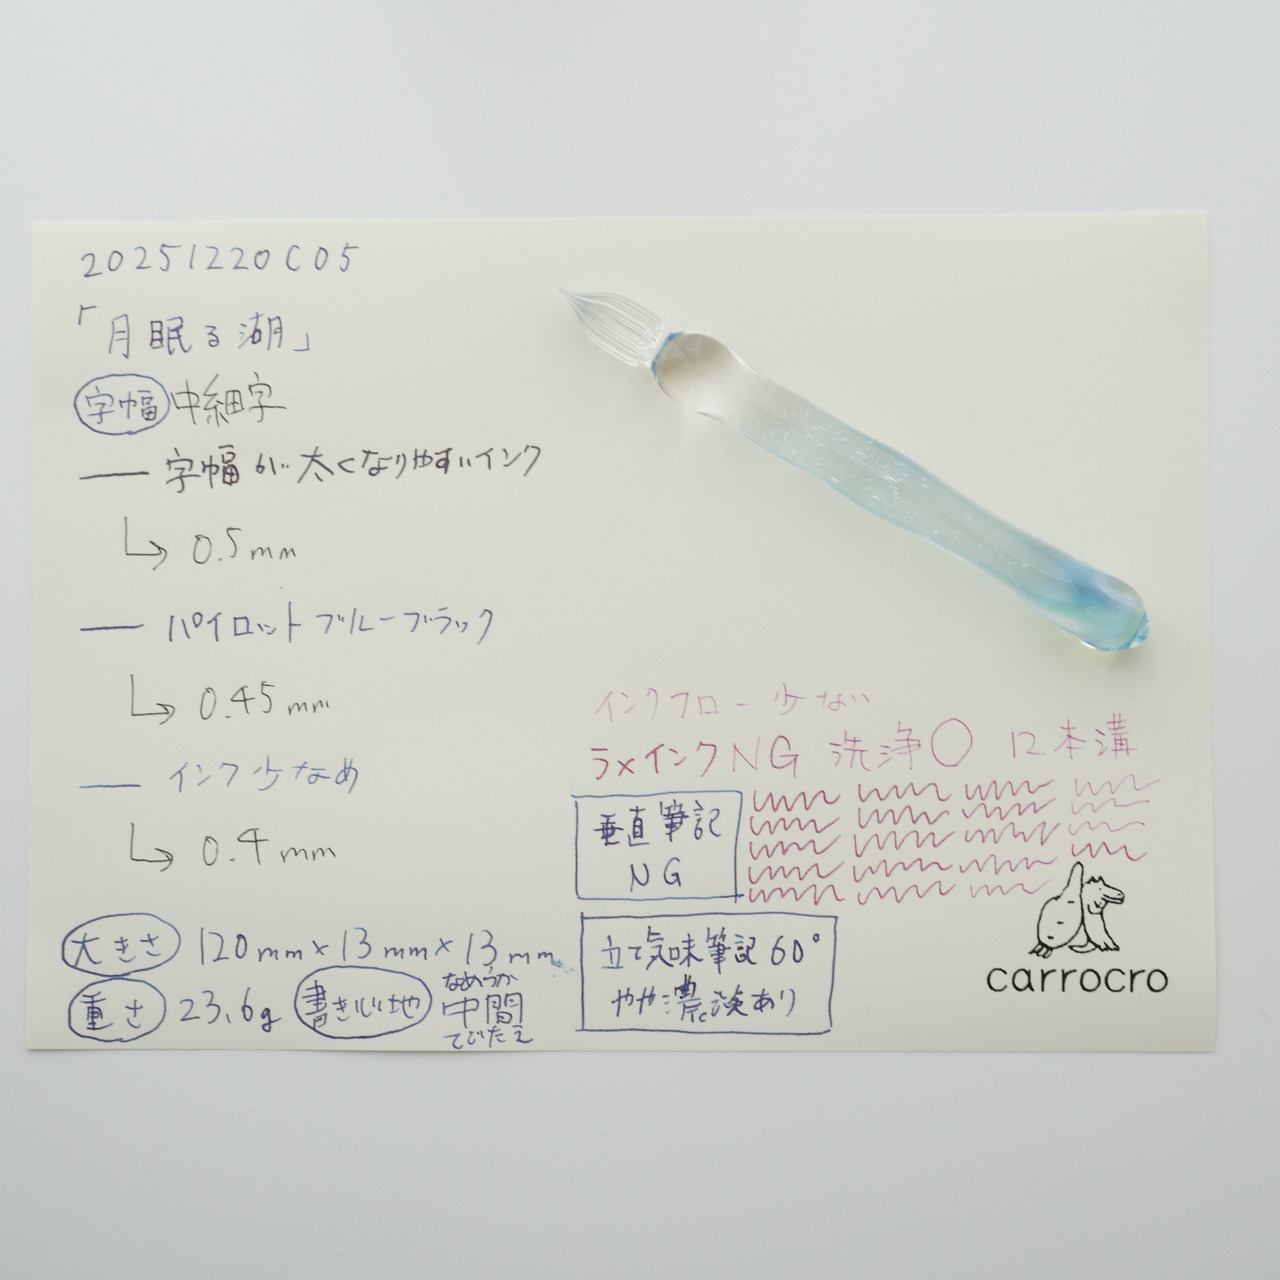 20251220C05
「月眠る湖」
字幅 中細字
字幅が太くなりやすいインク
0.5mm
パイロットブルーブラック
0.45mm
インク少なめ
0.4mm
大きさ 120mm×13mm×13mm
重さ 23.6g 書き心地 なめらか
中間
てごたえ
インクフロー少ない
ラメインクNG 洗浄○ 12本溝
垂直筆記
NG
立て気味筆記60°
やや濃淡あり
carrocro